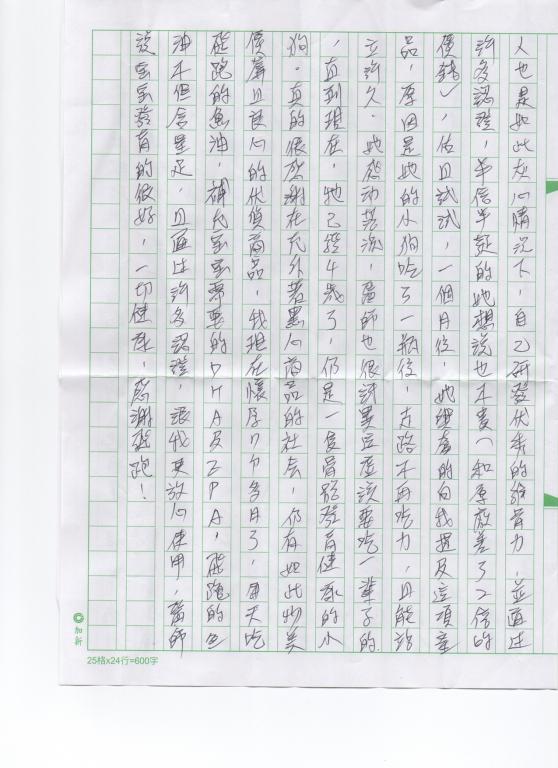 人也是如此灰心情況下，自己研發伏秀的錐骨力，並通過
許多認證，半信半疑的她想說也不貴（和原廠差了2倍的
價錢），估且試試，一個月後，她興奮的向我提及這項產
品，原因是她的小狗吃了一瓶後，走路不再吃力，且能站
立許久，她感動落淚，醫師也很訝異豆豆應該要吃一輩子的
，直到現在，牠已經4歲了，仍是一隻骨骼發育健康的小
狗，真的很感謝在充斥著黑心商品的社會，仍有如此物美
價廉且良心的優質商品，我現在懷孕7個多月了，每天吃
能跑的魚油，補充寶寶需要的DHA及EPA，能跑的魚
油不但含量足，且通過許多認證，讓我更放心使用，醫師
說寶寶發育的很好，一切健康，感謝能跑！
加新
25格x24行=600字